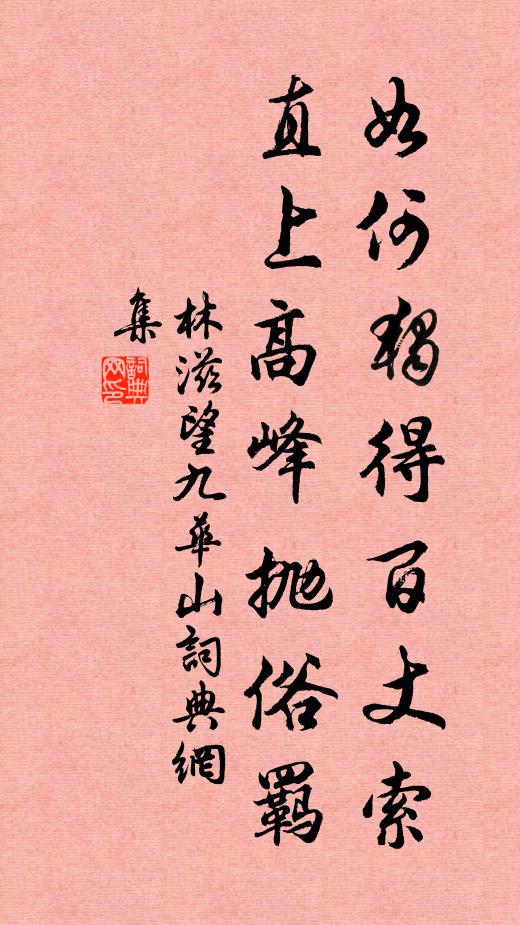 如何獨得百丈索
直上高峰拋俗羈
林滋望九華山詞典網
集
詞典網印